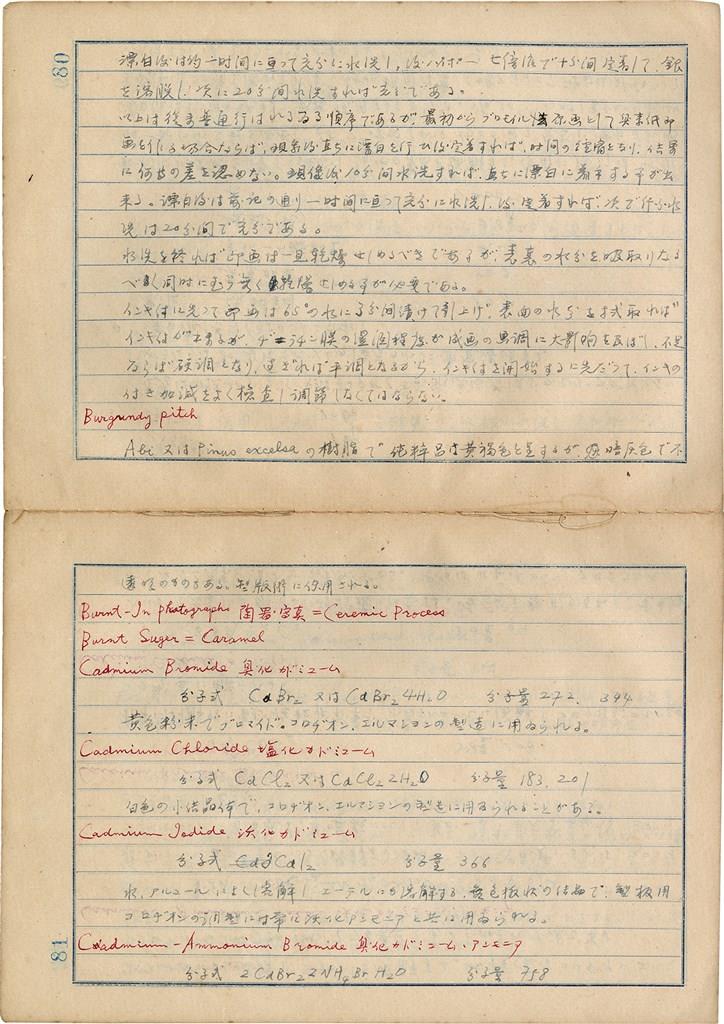 80
漂白後は約一時間に亘って充分に水洗し、後ハイポー七倍液で十分間定着して、銀
を溶脱し、次に20分間水洗すれば充分である。
以上は従来普通行はれる順序であるが、最初からブロモイル原画として臭素紙印
画を作る場合ならば、現象後直ちに漂白を行ひ後定着すれば、時間の短縮となり、結果
に何等の差を認めない。現像後10分間水洗すれば、直ちに漂白に着手する事が出
来る。漂白後は前記の通り一時間に亘って充分に水洗し、後定着すれば、次で行ふ水
洗は20分間で充分である。
水洗を終れば印画は一旦乾燥せしめるべきであるが、表裏の水分を吸取りなる
べく同時にむら無く乾燥せしめる事が必要である。
インキ付に先って印画は65°の水に3分間漬けて引上げ、表面の水分を拭取れば
インキ付が出来るが、ゲラチン膜の湿潤程度が成画の異調に大影響を及ぼし、不足
ならば硬調となり、過ぎれば平調となるから、インキ付を開始するに先だって、インキの
付き加減をよく検査し調節しなくてはならない。
Burgundy pitch
Abi 又は Pinus excelsa の樹脂で純粋品は黄褐色を呈するが、暗灰色で不
透明のものもある。製版術に使用される。
Burnt-In photographs 陶器写真 = Ceremic Process
Burnt Suger = Caramel
Cadmium Bromide 臭化カドミューム
分子式 CdBr₂ 又は CdBr₂ 4H₂O 分子量 272. 344
黄色粉末でブロマイド。コロヂオン、エルマションの製造に用ゐられる。
Cadmium Chloride 塩化カドミューム
分子式 CdCl₂ 又は CdCl₂ 2H₂O 分子量 183. 201
白色の小結晶体で、コロヂオン、エルマションの製造に用ゐられることがある。
Cadmium Iodide 沃化カドミューム
分子式 CdI₂ 分子量 366
水、アルコールによく溶解し エーテルにも溶解する、黄色板状の結晶で、製板用
コロヂオンの調製には常に沃化アンモニアと共に用ゐられる。
Cadmium-Ammonium Bromide 臭化カドミューム・アンモニア
分子式 2CdBr₂ 2NH₄Br H₂O 分子量 758
81